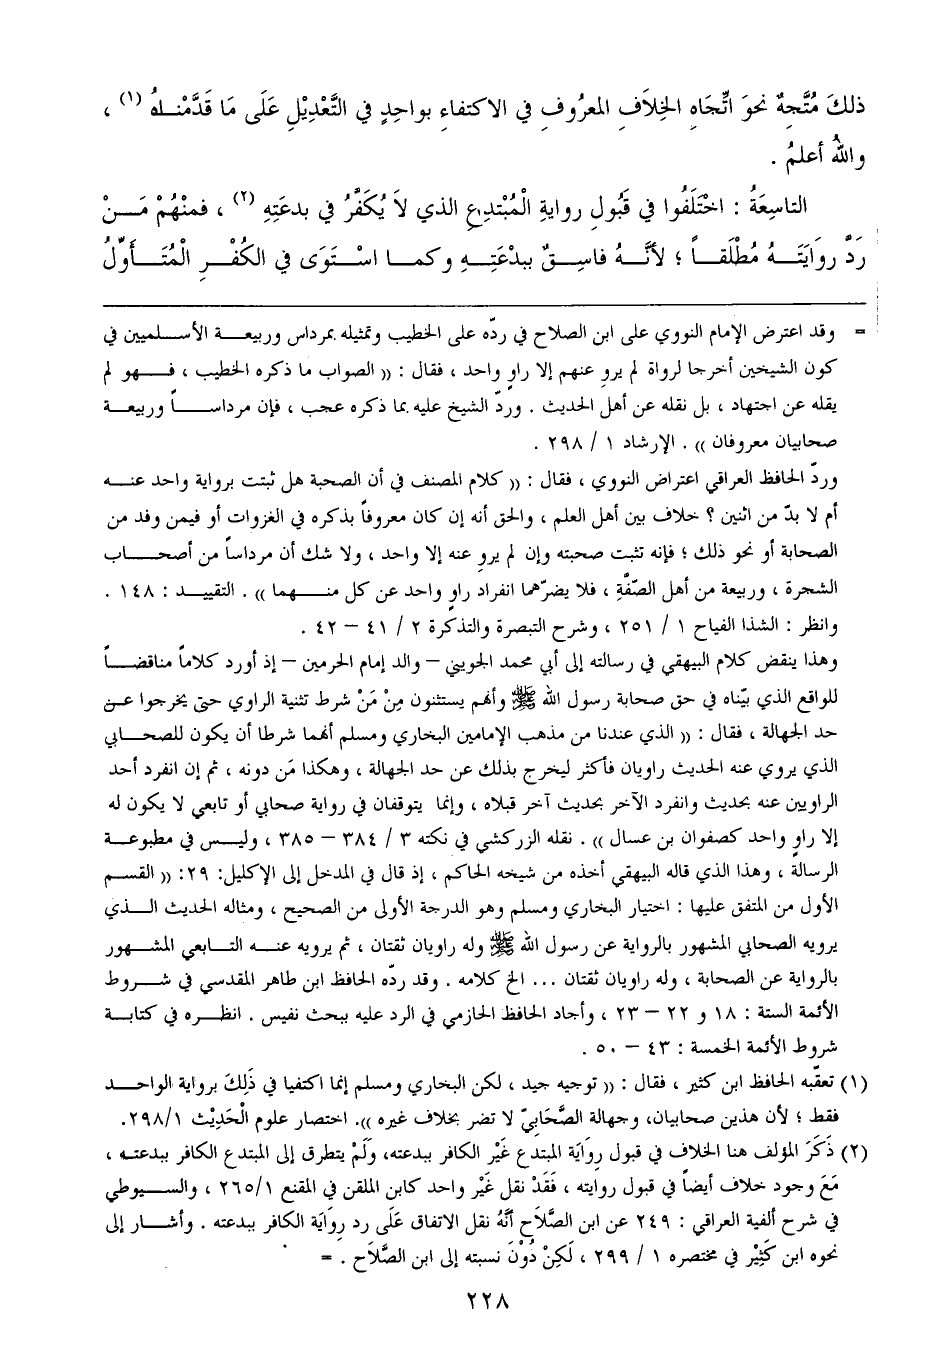 ذلكَ مُتَّجِهٌ نحوَ اتِّجَاهِ الخِلاَفِ المعرُوفِ في الاكتفاءِ بواحِدٍ في التَّعْدِيْلِ عَلَى مَا قَدَّمْنَاهُ (١) ،
واللهُ أعلمُ .
التاسِعَةُ : اخْتَلَفُوا في قَبُولِ روايةِ الْمُبْتَدِعِ الذي لاَ يُكَفَّرُ في بدعَتِهِ (٢) ، فمنْهُمْ مَنْ
رَدَّ رِوَايَتَهُ مُطْلَقاً ؛ لأنَّهُ فاسِقٌ ببدْعَتِهِ وكما اسْتَوَى في الكُفْرِ الْمُتَأَوِّلُ
= وقد اعترض الإمام النووي على ابن الصلاح في ردّه على الخطيب وتمثيله بمرداس وربيعة الأسلميين في
كون الشيخين أخرجا لرواة لم يروِ عنهم إلا راوٍ واحد ، فقال : (( الصواب ما ذكره الخطيب ، فهو لم
يقله عن اجتهاد ، بل نقله عن أهل الحديث . وردّ الشيخ عليه بما ذكره عجب ، فإن مرداساً وربيعة
صحابيان معروفان )) . الإرشاد ١ / ٢٩٨ .
وردّ الحافظ العراقي اعتراض النووي ، فقال : (( كلام المصنف في أن الصحبة هل ثبتت برواية واحد عنه
أم لا بدّ من اثنين ؟ خلاف بين أهل العلم ، والحق أنه إن كان معروفاً بذكره في الغزوات أو فيمن وفد من
الصحابة أو نحو ذلك ؛ فإنه تثبت صحبته وإن لم يروِ عنه إلا واحد ، ولا شك أن مرداساً من أصحاب
الشجرة ، وربيعة من أهل الصّفَّةِ ، فلا يضرّهما انفراد راوٍ واحد عن كل منهما )) . التقييد : ١٤٨ .
وانظر : الشذا الفياح ١ / ٢٥١ ، وشرح التبصرة والتذكرة ٢ / ٤١ – ٤٢ .
وهذا ينقض كلام البيهقي في رسالته إلى أبي محمد الجويني – والد إمام الحرمين – إذ أورد كلاماً مناقضاً
للواقع الذي بيّناه في حق صحابة رسول الله ﷺ وأنهم يستثنون مِنْ مَنْ شرط تثنية الراوي حتى يخرجوا عن
حد الجهالة ، فقال : (( الذي عندنا من مذهب الإمامين البخاري ومسلم أنهما شرطا أن يكون للصحابي
الذي يروي عنه الحديث راويان فأكثر ليخرج بذلك عن حد الجهالة ، وهكذا مَن دونه ، ثم إن انفرد أحد
الراويين عنه بحديث وانفرد الآخر بحديث آخر قبلاه ، وإنما يتوقفان في رواية صحابي أو تابعي لا يكون له
إلا راوٍ واحد كصفوان بن عسال )) . نقله الزركشي في نكته ٣ / ٣٨٤ – ٣٨٥ ، وليس في مطبوعة
الرسالة ، وهذا الذي قاله البيهقي أخذه من شيخه الحاكم ، إذ قال في المدخل إلى الإكليل: ٢٩: (( القسم
الأول من المتفق عليها : اختيار البخاري ومسلم وهو الدرجة الأولى من الصحيح ، ومثاله الحديث الذي
يرويه الصحابي المشهور بالرواية عن رسول الله ﷺ وله راويان ثقتان ، ثم يرويه عنه التابعي المشهور
بالرواية عن الصحابة ، وله راويان ثقتان ... الخ كلامه . وقد ردّه الحافظ ابن طاهر المقدسي في شروط
الأئمة الستة : ١٨ و ٢٢ – ٢٣ ، وأجاد الحافظ الحازمي في الرد عليه ببحث نفيس . انظره في كتابة
شروط الأئمة الخمسة : ٤٣ – ٥٠ .
(١) تعقّبه الحافظ ابن كثير ، فقال : (( توجيه جيد ، لكن البخاري ومسلم إنما اكتفيا في ذَلِكَ برواية الواحد
فقط ؛ لأن هذين صحابيان، وجهالة الصَّحَابيّ لا تضر بخلاف غيره )). اختصار علوم الْحَدِيْث ٢٩٨/١.
(٢) ذَكَرَ المؤلف هنا الخلاف في قبول رِوَايَة المبتدع غَيْر الكافر ببدعته، ولَمْ يتطرق إلى المبتدع الكافر ببدعته ،
مَعَ وجود خلاف أيضاً في قبول روايته ، فَقَدْ نقل غَيْر واحد كابن الملقن في المقنع ٢٦٥/١ ، والسيوطي
في شرح ألفية العراقي : ٢٤٩ عن ابن الصَّلاَح أنَّهُ نقل الاتفاق عَلَى رد رِوَايَة الكافر ببدعته . وأشار إلى
نحوه ابن كَثِيْر في مختصره ١ / ٢٩٩ ، لَكِنْ دُوْنَ نسبته إلى ابن الصَّلاَح . =
٢٢٨